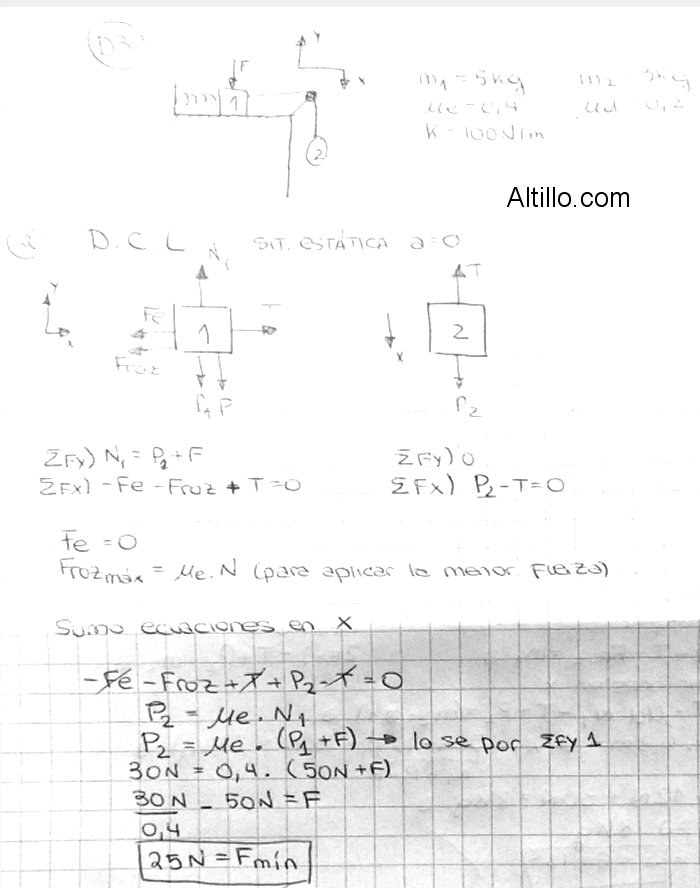 D3
F
Y
X
1
2
m₁ = 5kg m₂ 3kg
μe = 0,4 μd 0,2
K = 100N/m
Altillo.com
a D.C.L SIT. ESTÁTICA a=0
N₁
T
Y
Fe
T
1
2
x
x
Froz
P₁ F
P₂
ΣFy) N₁ = P₂ + F
ΣFy) 0
ΣFx) -Fe - Froz + T = 0
ΣFx) P₂ - T = 0
Fe = 0
Frozmáx = μe. N (para aplicar la menor Fuerza)
Sumo ecuaciones en X
-Fe - Froz + T + P₂ - T = 0
P₂ = μe . N₁
P₂ = μe . (P₁ + F) → lo se por ΣFy 1
30N = 0,4 . (50N + F)
30N - 50N = F
0,4
25N = Fmín